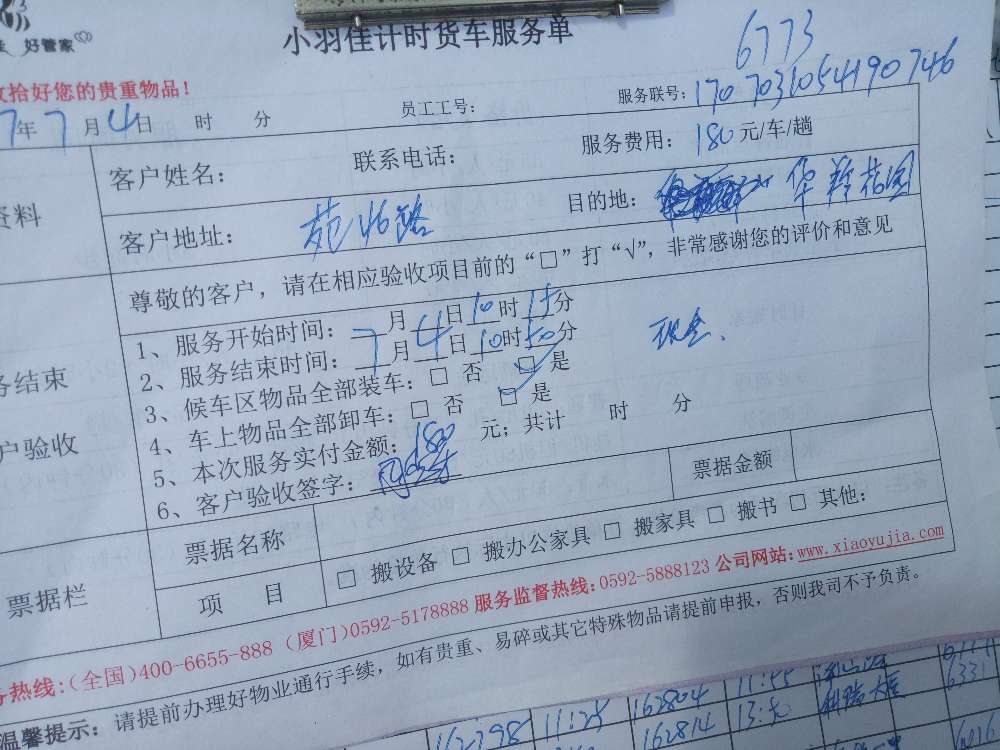 好管家
小羽佳计时货车服务单
6773
收拾好您的贵重物品！
7年7月4日 时 分 员工工号： 服务联号：1707031054190746
资料 客户姓名： 联系电话： 服务费用：180元/车/趟
客户地址： 目的地： 华 花园
尊敬的客户，请在相应验收项目前的“□”打“√”，非常感谢您的评价和意见
1、服务开始时间：7月4日10时15分
2、服务结束时间：7月4日10时50分 现金.
务结束 3、候车区物品全部装车：□ 否 ☑ 是
4、车上物品全部卸车：□ 否 ☑ 是
户验收 5、本次服务实付金额：180元；共计 时 分
6、客户验收签字：
票据栏 票据名称 票据金额
项 目 □ 搬设备 □ 搬办公家具 □ 搬家具 □ 搬书 □ 其他：
务热线：(全国)400-6655-888 (厦门)0592-5178888 服务监督热线：0592-5888123 公司网站：www.xiaoyujia.com
温馨提示：请提前办理好物业通行手续，如有贵重、易碎或其它特殊物品请提前申报，否则我司不予负责。
11:25 162804 11:55
162814 6331